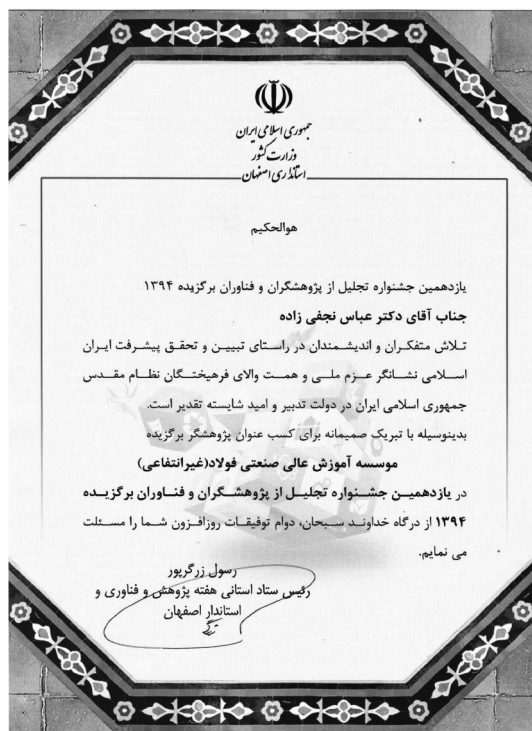 جمهوری اسلامی ایران
وزارت کشور
استانداری اصفهان
هوالحکیم
یازدهمین جشنواره تجلیل از پژوهشگران و فناوران برگزیده ۱۳۹۴
جناب آقای دکتر عباس نجفی زاده
تلاش متفکران و اندیشمندان در راستای تبیین و تحقق پیشرفت ایران
اسلامی نشانگر عزم ملی و همت والای فرهیختگان نظام مقدس
جمهوری اسلامی ایران در دولت تدبیر و امید شایسته تقدیر است.
بدینوسیله با تبریک صمیمانه برای کسب عنوان پژوهشگر برگزیده
موسسه آموزش عالی صنعتی فولاد(غیرانتفاعی)
در یازدهمین جشنواره تجلیل از پژوهشگران و فناوران برگزیده
۱۳۹۴ از درگاه خداوند سبحان، دوام توفیقات روزافزون شما را مسئلت
می نمایم.
رسول زرگرپور
رئیس ستاد استانی هفته پژوهش و فناوری و
استاندار اصفهان